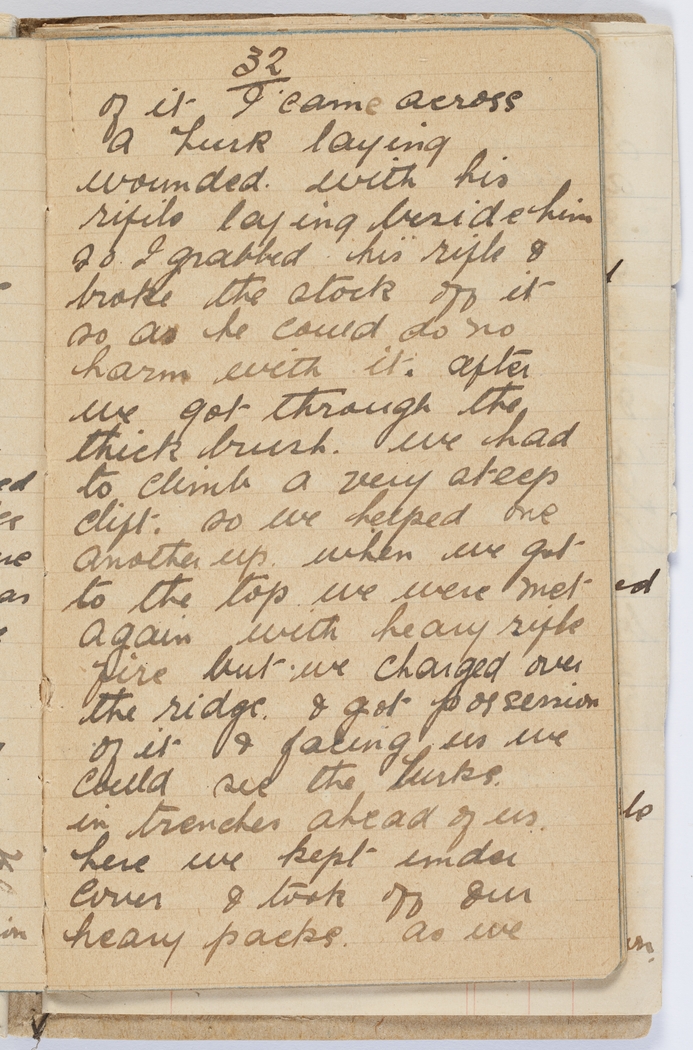 32
of it I came across
a Turk laying
wounded. with his
rifils laying beside him
so I grabbed his rifle &
broke the stock off it
so as he could do no
harm with it. after
we got through the
thick brush. we had
to climb a very steep
clift. so we helped one
another up. when we got
to the top we were met
again with heavy rifle
fire but we charged over
the ridge. & got possession
of it & facing us we
could see the Turks.
in trenches ahead of us.
here we kept under
cover & took off our
heavy packs. as we